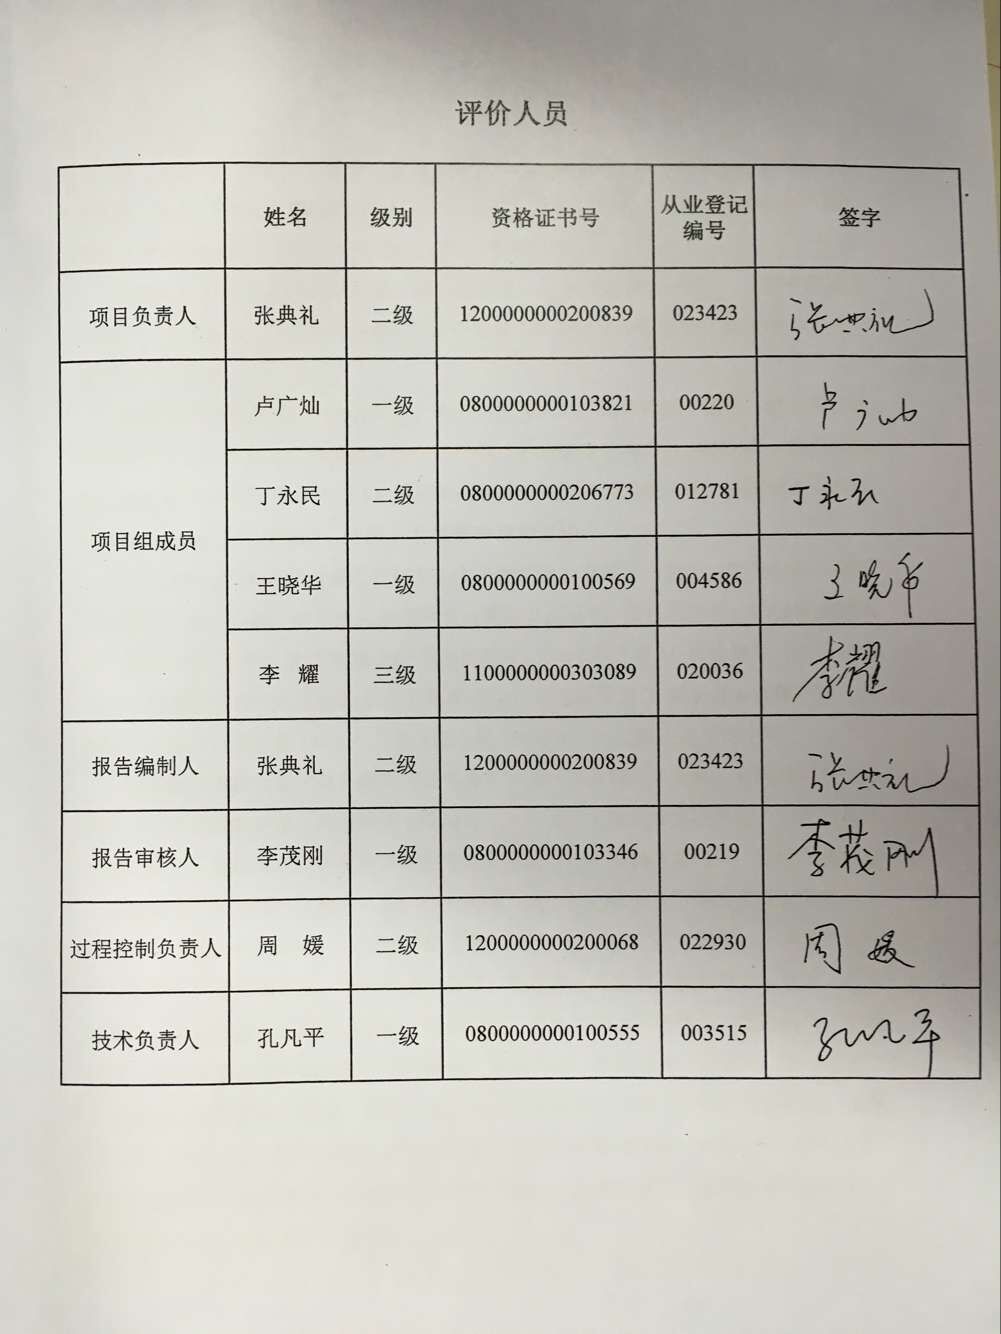 评价人员
姓名 级别 资格证书号 从业登记编号 签字
项目负责人 张典礼 二级 1200000000200839 023423 张典礼
项目组成员 卢广灿 一级 0800000000103821 00220 卢广灿
丁永民 二级 0800000000206773 012781 丁永民
王晓华 一级 0800000000100569 004586 王晓华
李 耀 三级 1100000000303089 020036 李耀
报告编制人 张典礼 二级 1200000000200839 023423 张典礼
报告审核人 李茂刚 一级 0800000000103346 00219 李茂刚
过程控制负责人 周 媛 二级 1200000000200068 022930 周媛
技术负责人 孔凡平 一级 0800000000100555 003515 孔凡平